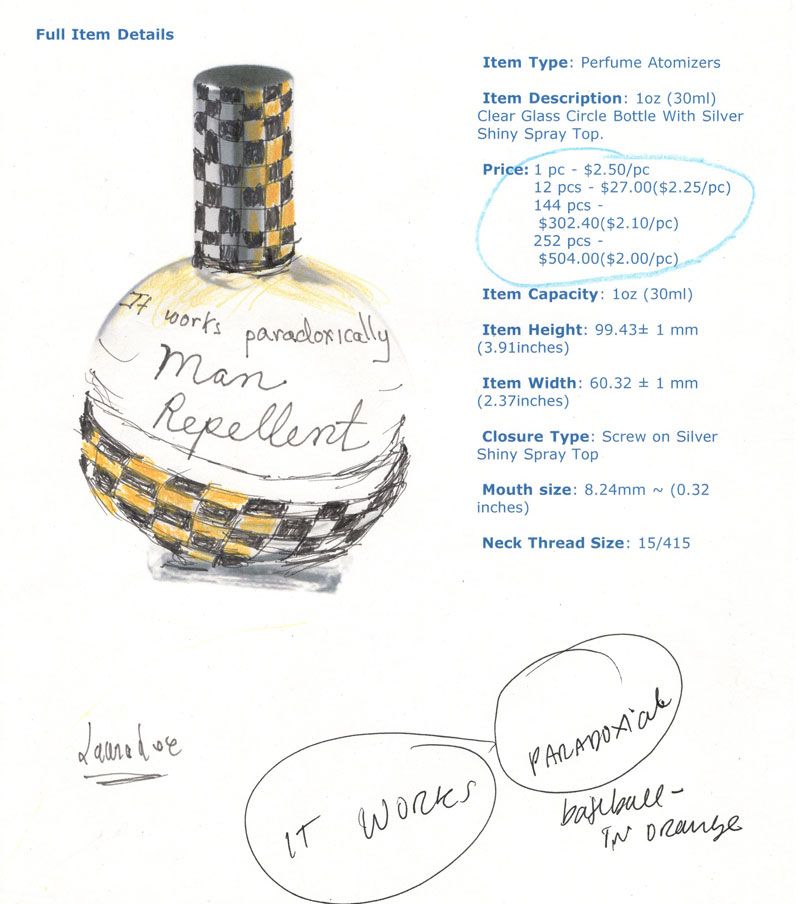 Full Item Details
Item Type: Perfume Atomizers
Item Description: 1oz (30ml)
Clear Glass Circle Bottle With Silver
Shiny Spray Top.
Price: 1 pc - $2.50/pc
12 pcs - $27.00($2.25/pc)
144 pcs -
$302.40($2.10/pc)
252 pcs -
$504.00($2.00/pc)
Item Capacity: 1oz (30ml)
Item Height: 99.43± 1 mm
(3.91inches)
Item Width: 60.32 ± 1 mm
(2.37inches)
Closure Type: Screw on Silver
Shiny Spray Top
Mouth size: 8.24mm ~ (0.32
inches)
Neck Thread Size: 15/415
It works paradoxically
Man
Repellent
IT WORKS
baseball -
IN orange